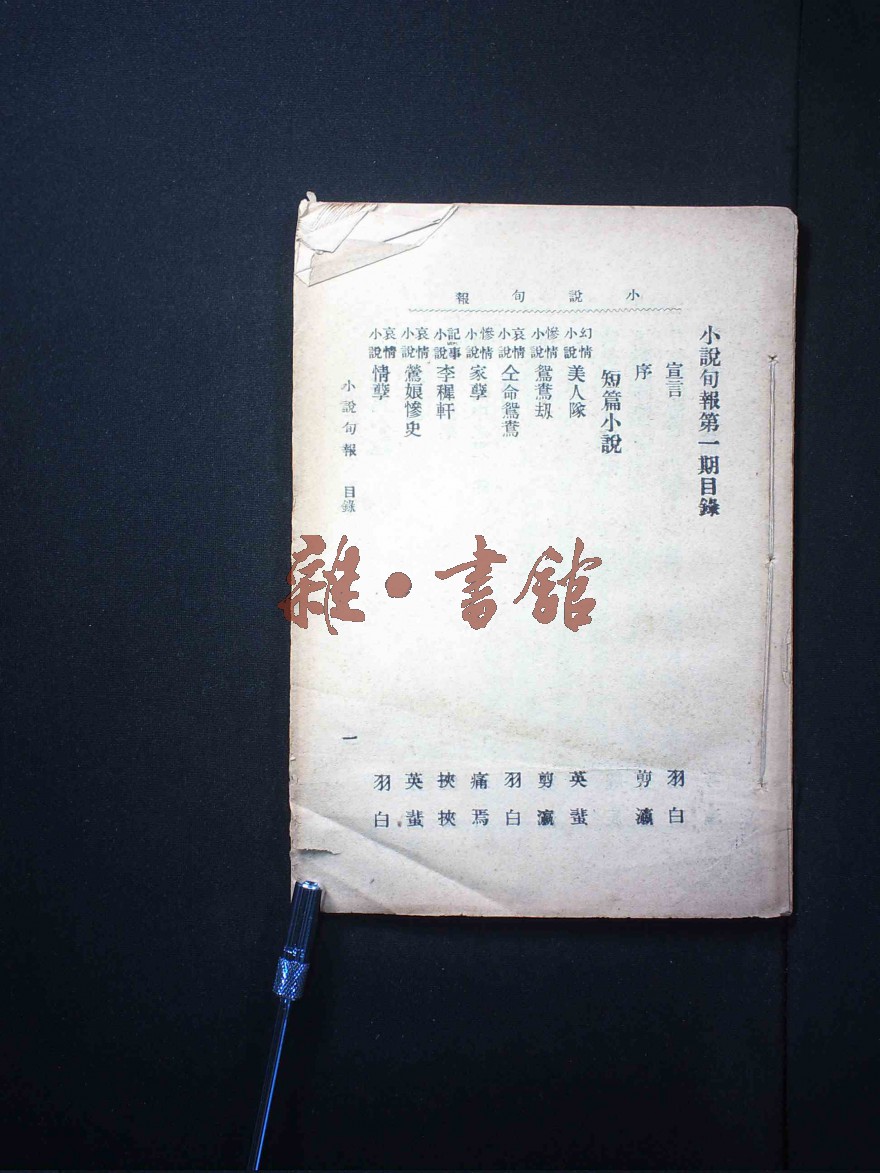 小說旬報
小說旬報第一期目錄
宣言 羽白
序 剪瀛
短篇小說
幻情小說 美人隊 英蜚
慘情小說 鴛鴦刼 剪瀛
哀情小說 仝命鴛鴦 羽白
慘情小說 家孽 痛焉
記事小說 李穉軒 挾挾
哀情小說 鶯娘慘史 英蜚
哀情小說 情孽 羽白
小說旬報 目錄 一
雜·書館